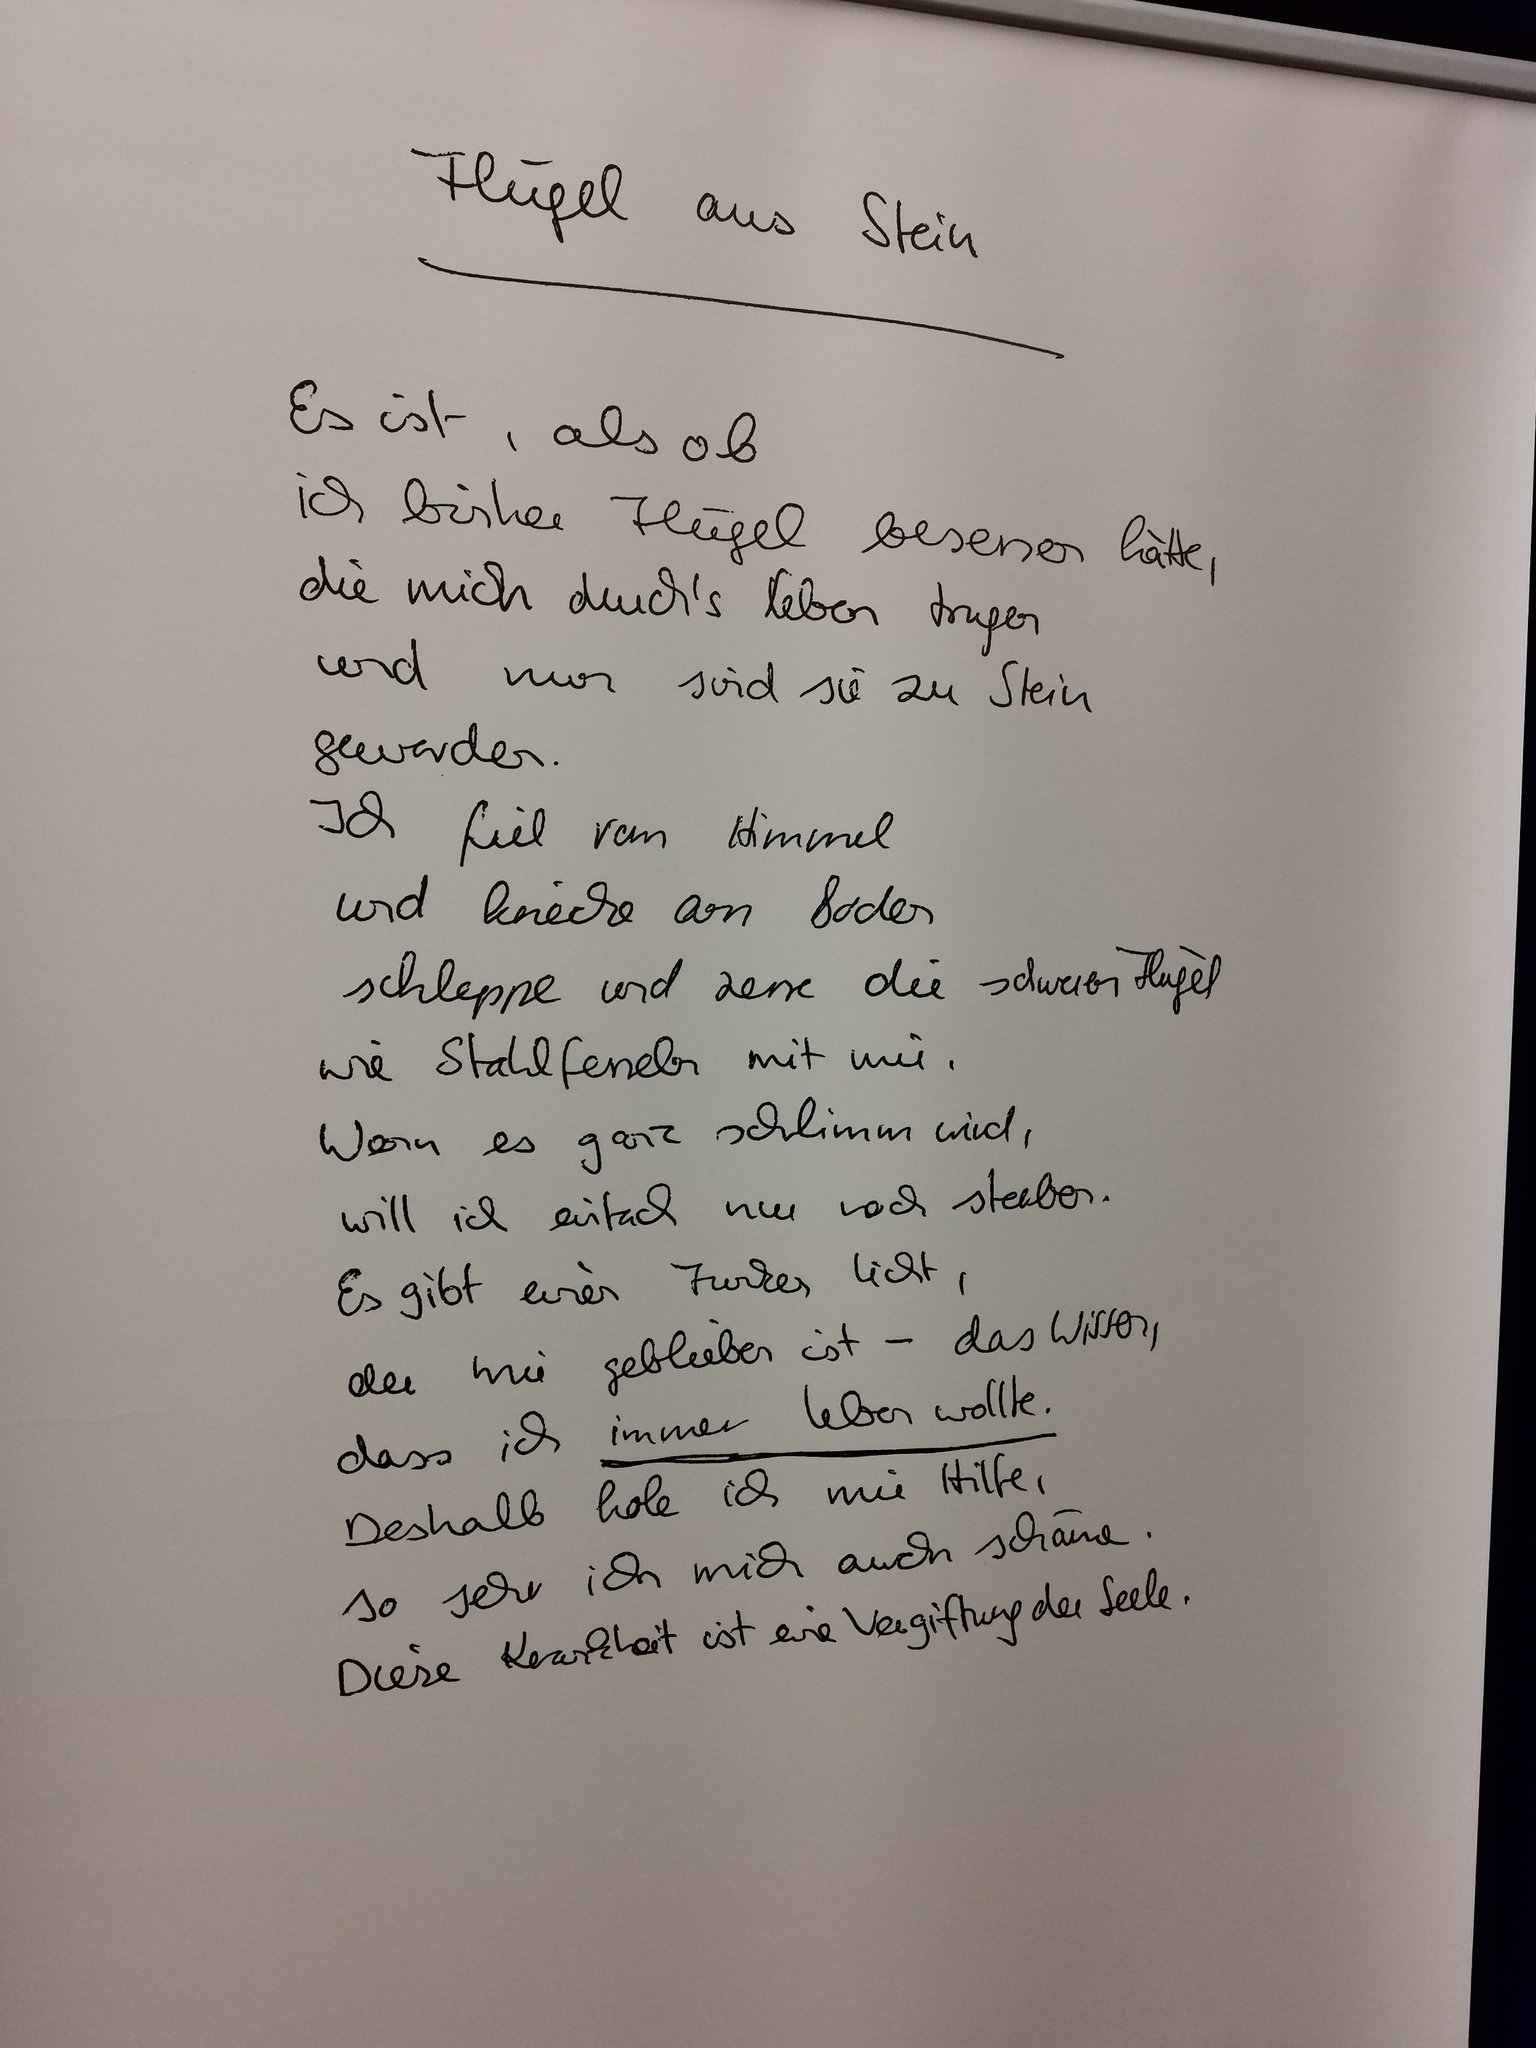 Flügel aus Stein
Es ist, als ob
ich bisher Flügel besessen hätte,
die mich durch's Leben trugen
und nun sind sie zu Stein
geworden.
Ich fiel vom Himmel
und krieche am Boden
schleppe und zerre die schweren Flügel
wie Stahlfesseln mit mir.
Wenn es ganz schlimm wird,
will ich einfach nur noch sterben.
Es gibt einen Funken Licht,
der mir geblieben ist – das Wissen,
dass ich immer leben wollte.
Deshalb hole ich mir Hilfe,
so sehr ich mich auch schäme.
Diese Krankheit ist eine Vergiftung der Seele.